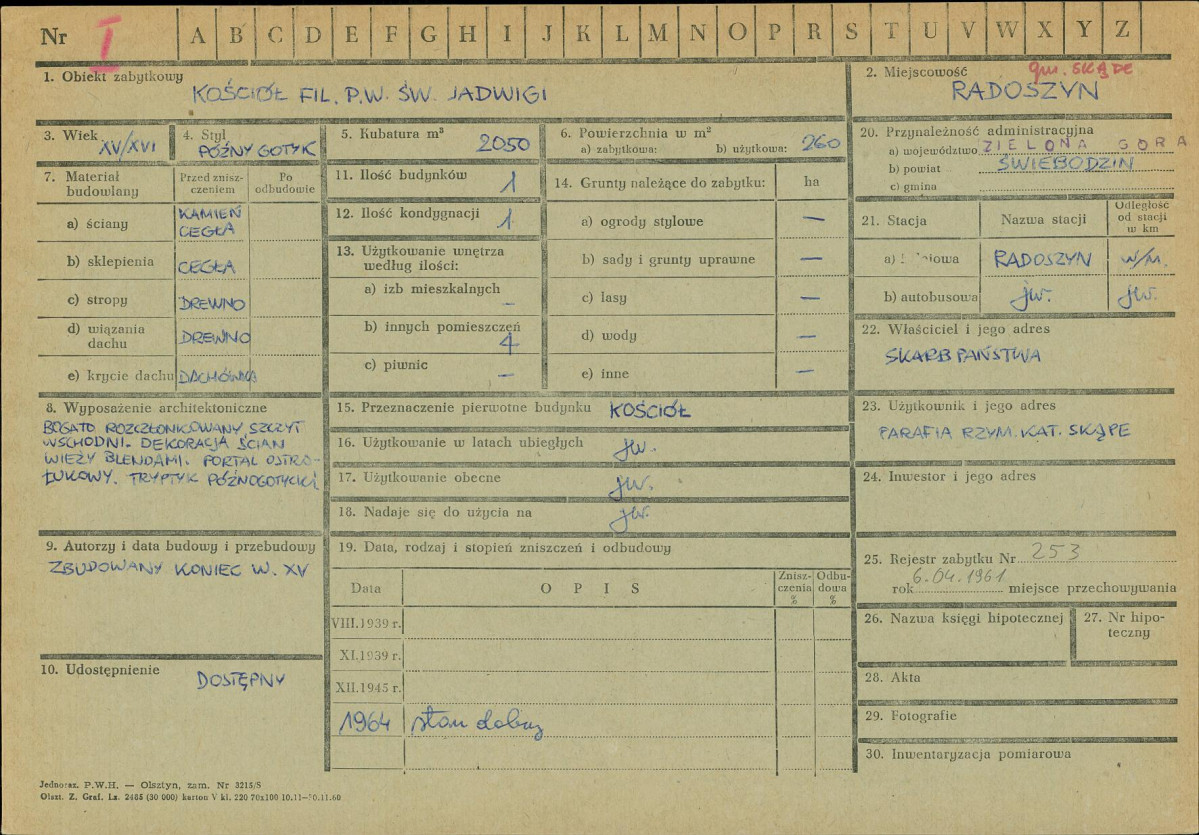 Nr I A B C D E F G H I J K L M N O P R S T U V W X Y Z
1. Obiekt zabytkowy
KOŚCIÓŁ FIL. P.W. ŚW. JADWIGI
2. Miejscowość
gm. SKĄPE
RADOSZYN
3. Wiek
XV/XVI
4. Styl
PÓŹNY GOTYK
5. Kubatura m³
2050
6. Powierzchnia w m²
a) zabytkowa: b) użytkowa: 260
20. Przynależność administracyjna
a) województwo ZIELONA GÓRA
b) powiat ŚWIEBODZIN
c) gmina
7. Materiał budowlany
Przed zniszczeniem
Po odbudowie
a) ściany KAMIEŃ
CEGŁA
b) sklepienia CEGŁA
c) stropy DREWNO
d) wiązania dachu DREWNO
e) krycie dachu DACHÓWKA
11. Ilość budynków 1
12. Ilość kondygnacji 1
13. Użytkowanie wnętrza
według ilości:
a) izb mieszkalnych –
b) innych pomieszczeń
4
c) piwnic –
14. Grunty należące do zabytku: ha
a) ogrody stylowe —
b) sady i grunty uprawne —
c) lasy —
d) wody —
e) inne —
21. Stacja Nazwa stacji Odległość
od stacji
w km
a) RADOSZYN w/m.
b) autobusowa jw. jw.
22. Właściciel i jego adres
SKARB PAŃSTWA
8. Wyposażenie architektoniczne
BOGATO ROZCZŁONKOWANY SZCZYT
WSCHODNI. DEKORACJA ŚCIAN
WIEŻY BLENDAMI. PORTAL OSTRO-
ŁUKOWY. TRYPTYK PÓŹNOGOTYCKI
15. Przeznaczenie pierwotne budynku KOŚCIÓŁ
16. Użytkowanie w latach ubiegłych jw.
17. Użytkowanie obecne jw.
18. Nadaje się do użycia na jw.
23. Użytkownik i jego adres
PARAFIA RZYM. KAT. SKĄPE
24. Inwestor i jego adres
9. Autorzy i data budowy i przebudowy
ZBUDOWANY KONIEC W. XV
19. Data, rodzaj i stopień zniszczeń i odbudowy
Data OPIS Znisz-
czenia
% Odbu-
dowa
%
VIII.1939 r.
XI.1939 r.
XII.1945 r.
1964 stan dobry
25. Rejestr zabytku Nr 253
rok 6.04.1961 miejsce przechowywania
26. Nazwa księgi hipotecznej
27. Nr hipo-
teczny
10. Udostępnienie
DOSTĘPNY
28. Akta
29. Fotografie
30. Inwentaryzacja pomiarowa
Jednoraz. P.W.H. — Olsztyn, zam. Nr 3215/S
Olszt. Z. Graf. La. 2485 (30 000) karton V kl. 220 70x100